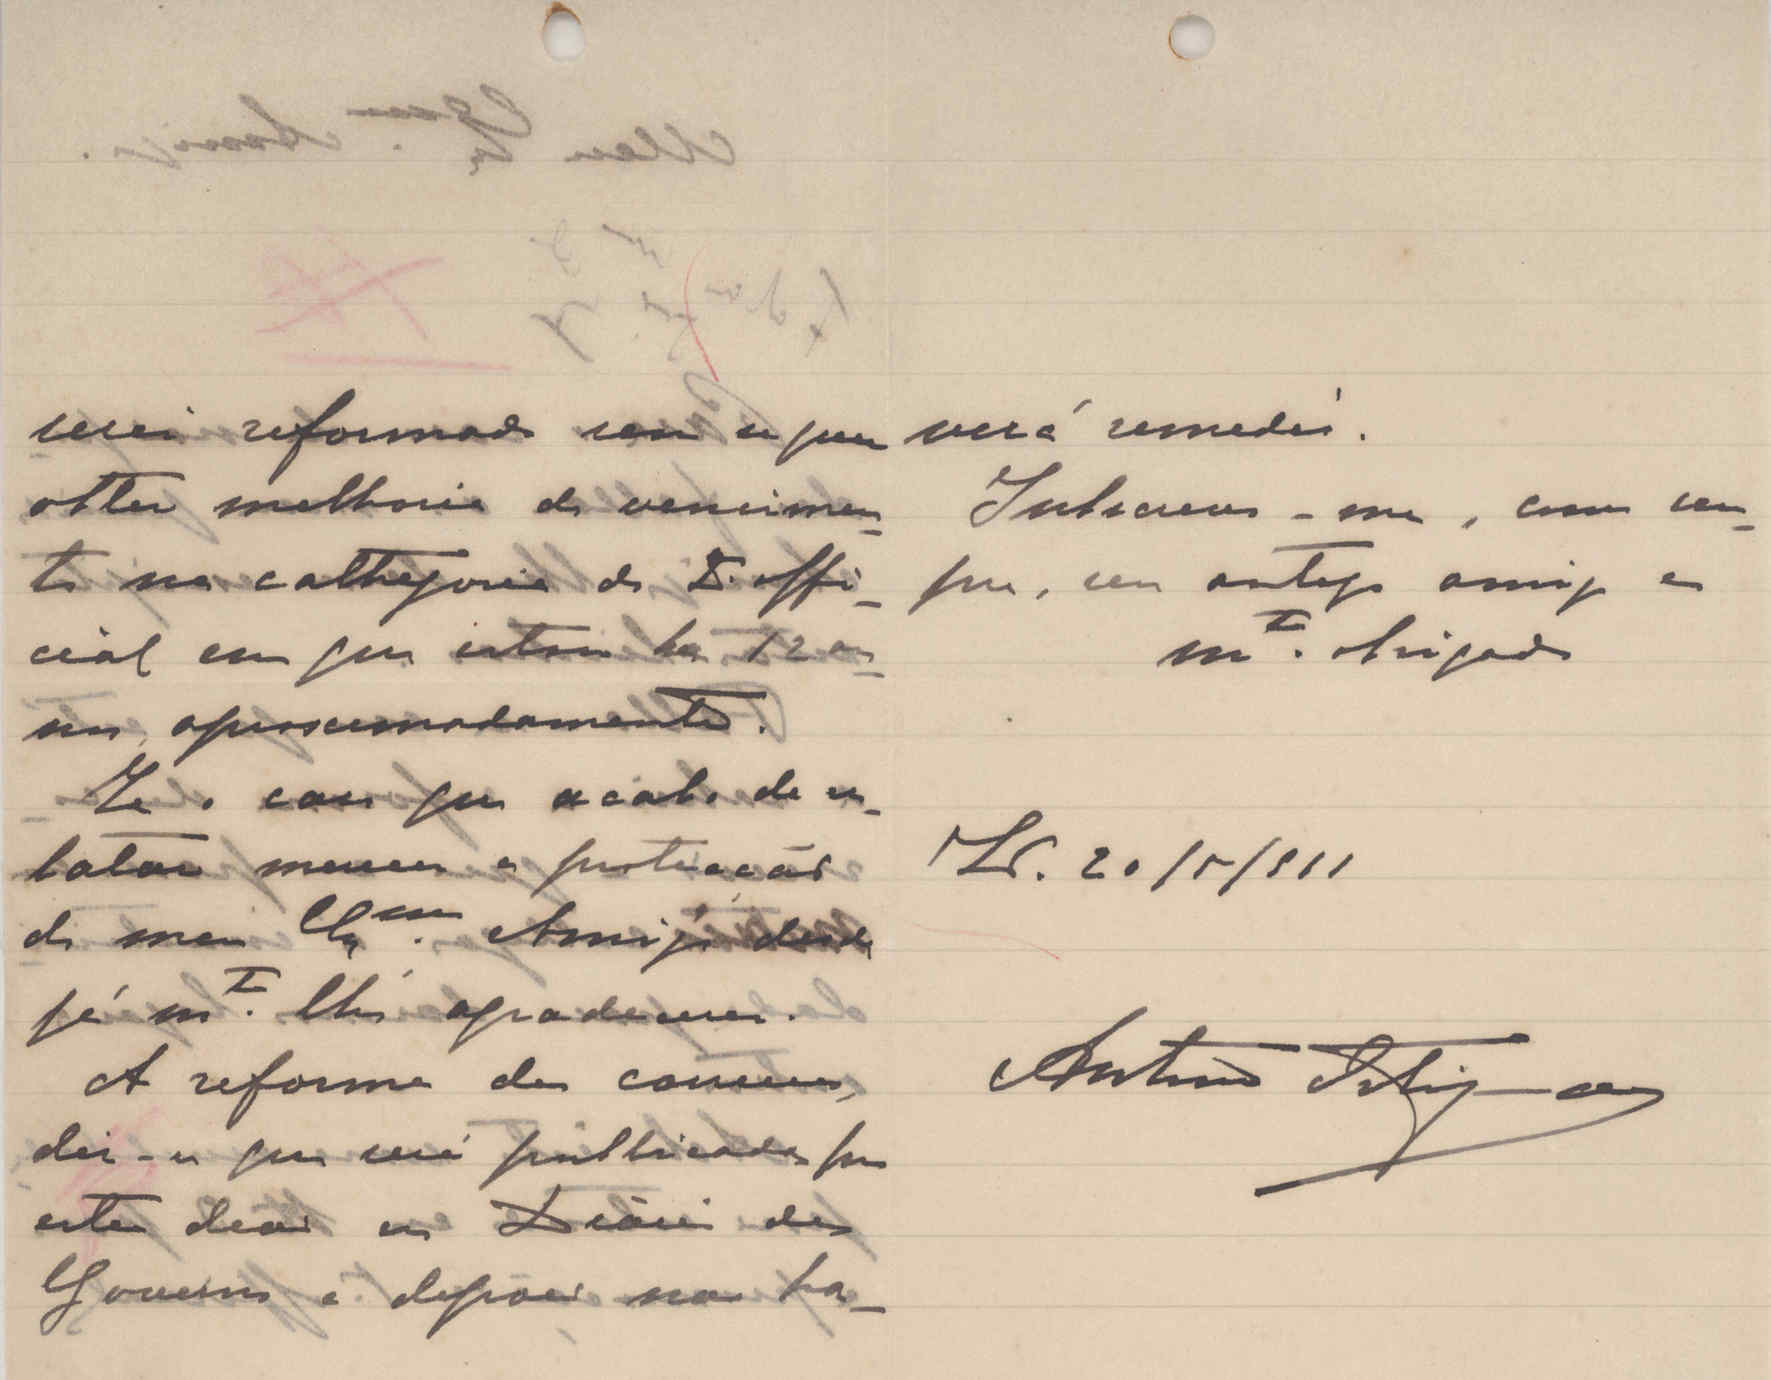 serei reformado sem que
obter melhoria de vencimen-
to na cathegoria de 2.º offi-
cial em que estou ha 12 an-
nos, aproximadamente.
Se o caso que acabo de re-
latar merecer a protecção
do meu Ex.mo Amigo desde
já m.to lh'o agradecerei.
A reforma dos correios,
diz-se que será publicada por
estes dias no Diário do
Governo e depois não ha-
verá remedio.
Subscrevo-me, como sem-
pre, seu antigo amigo e
m.to obrigado
20/5/911
Antonio